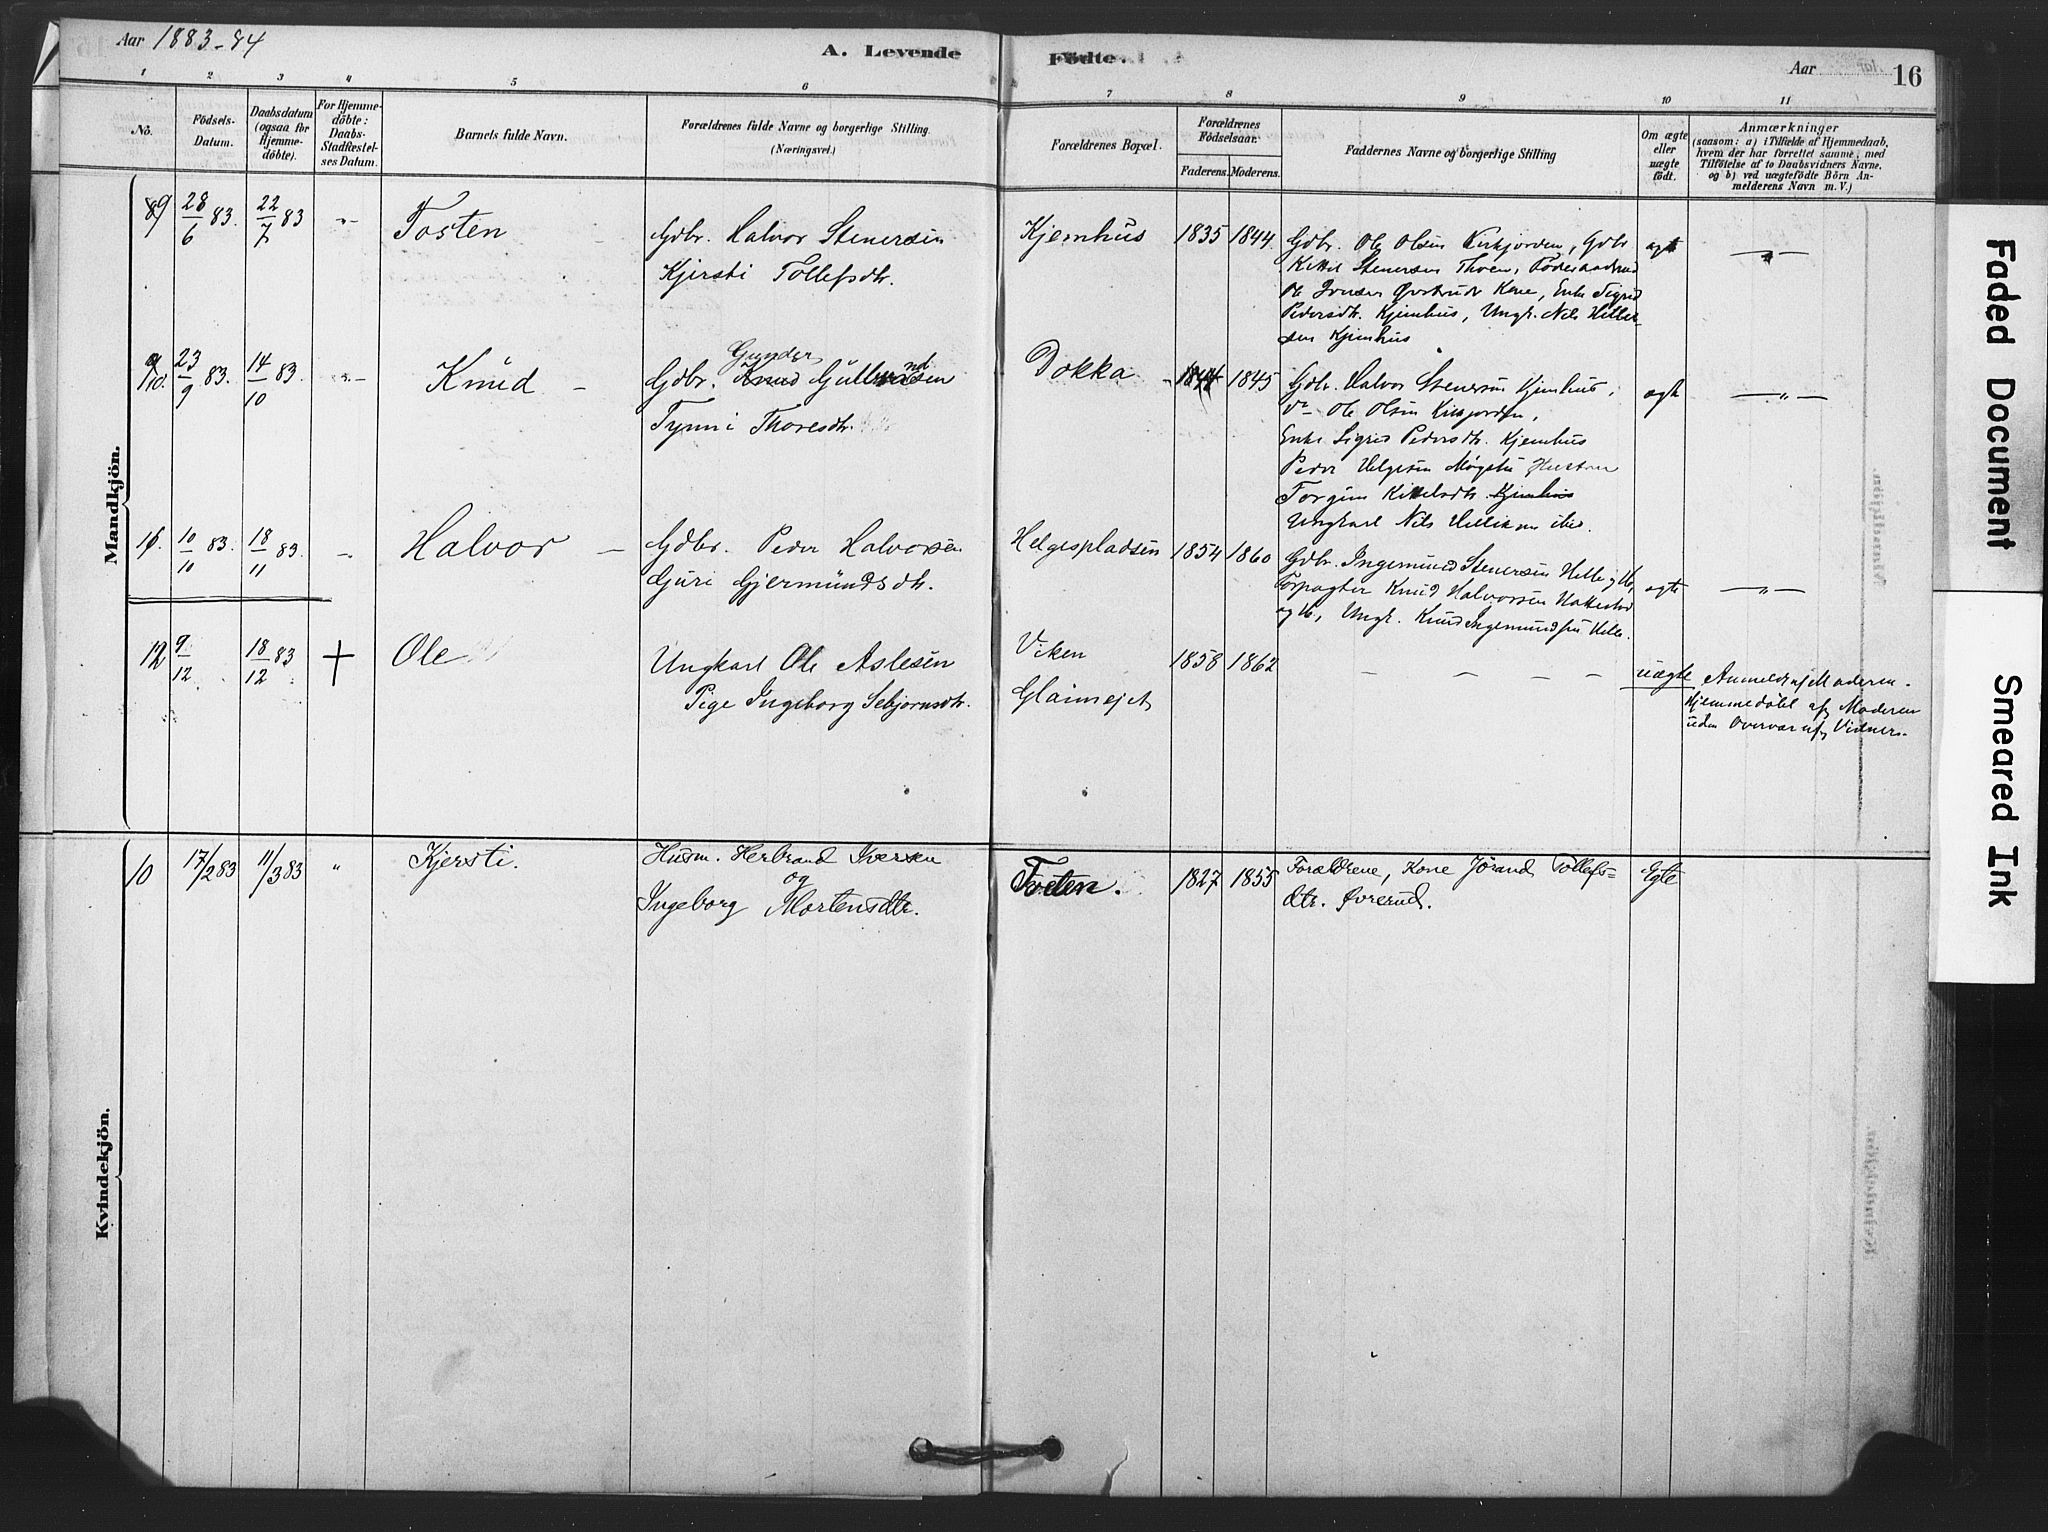 Aar 1883-84
A. Levende
Fødte.
Aar
16
1 2 3 4 5 6 7 8 9 10 11
No.
Fødsels-
Datum.
Daabsdatum
(ogsaa for
Hjemme-
døbte).
For Hjemme-
døbte:
Daabs-
Stadfæstel-
ses Datum.
Barnets fulde Navn.
Forældrenes fulde Navne og borgerlige Stilling
(Næringsvei.)
Forældrenes Bopæl.
Forældrenes
Fødselsaar.
Faderens. Moderens.
Faddernes Navne og borgerlige Stilling
Om ægte
eller
uægte
født.
Anmærkninger
(saasom: a) i Tilfælde af Hjemmedaab,
hvem der har forrettet samme, med
Tilføtelse af to Daabsvidners Navne,
og b) ved uægtefødte Børn An-
melderens Navn m. V.)
Mandkjön.
9 28/6 83. 22/7 83 -"- Tosten
Gdbr. Halvor Stenersen
Kjersti Tollefsdtr.
Kjemhus 1835 1844.
Gdbr. Ole Olsen Kirkjorden, Gdbr
Kittil Stenersen Thoen,
Ole Jonsen Kone, Enke Sigrid
Pedersdtr. Kjemhus, Ungk. Nils Hellik-
sen Kjemhus
ægte -"-
10. 23/9 83. 14/10 83. -"- Knud -
Gunder
Gdbr. Knud Gulbrandsen
Tynni Thoresdtr.
Dokka - 1844 1845
Gdbr. Halvor Stenersen Kjemhus,
Do Ole Olsen Kirkjorden,
Enke Sigrid Pedersdtr. Kjemhus
Peder Helgesen Møgstu Hustru
Torgun Kittelsdtr. Kjemhus
Ungkarl Nils Helliksen ibid.
ægte -"-
11. 10/10 83. 18/11 83. -"- Halvor -
Gdbr. Peder Halvorsen
Guri Gjermundsdtr.
Helgespladsen 1854 1860
Gdbr. Ingemund Stenersen Helle og H,
Forpagter Knud Halvorsen Hattestad
og H, Ungk. Knud Ingemundsen Helle.
ægte -"-
12 9/12 18/12 83 + Ole
Ungkarl Ole Aslesen
Pige Ingeborg Sebjørnsdtr.
Viken
1858 1862
- - - - -
uægte
Anmeldt af Moderen.
Hjemmedøbt af Moderen
uden Overvær af Vidner.
Kvindekjön.
10 17/2 83 11/3 83 " Kjersti.
Husm. Herbrand Iversen
og
Ingeborg Mortensdtr.
Tveten. 1827 1855
Forældrene, Kone Jørand Tollefs=
dtr. Øvrerud.
Egte
Faded Document
Smeared Ink